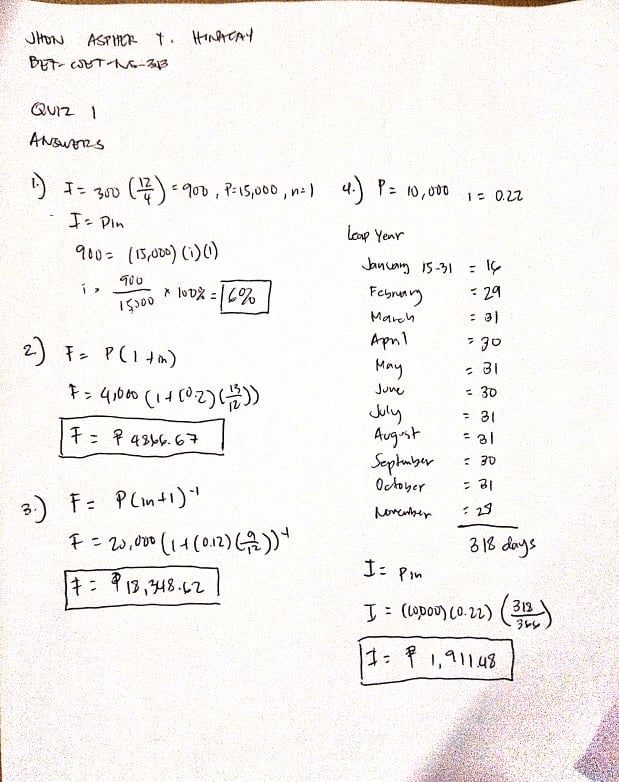 JHON ASPHER T. HINACAY
QUIZ 1
ANSWERS
1.) I = 300 (12/4) = 900, P=15,000, n=1
I = Pin
900 = (15,000)(i)(1)
i = 900/15000 × 100% = 6%
2) F = P(1+in)
F = 4,000 (1+(0.2)(13/12))
F = ₱ 4866.67
3.) F = P(in+1)⁻¹
F = 20,000 (1+(0.12)(9/12))⁻¹
F = ₱ 18,348.62
4.) P = 10,000 i = 0.22
Leap Year
January 15-31 = 16
February = 29
March = 31
April = 30
May = 31
June = 30
July = 31
August = 31
September = 30
October = 31
November = 28
318 days
I = Pin
I = (10,000)(0.22) (318/366)
I = ₱ 1,911.48